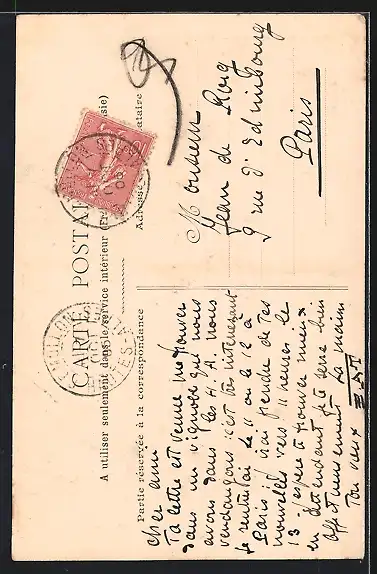 CARTE POSTALE
A utiliser seulement dans le service intérieur (Fra sie)
Partie réservée à la correspondance
Adresse ataire
Monsieur
Jean de Roug
9 rue d'Edimbourg
Paris
Cher ami
Ta lettre est venue me trouver
dans un vignoble que nous
avons dans les H. A. nous
vendangeons c'est très intéressant
je rentrerai le 11 ou le 12 à
Paris j'irai prendre de tes
nouvelles vers 11 heures le
13 j'espère te trouver mieux
en attendant je te serre bien
affectueusement la main
Ton vieux